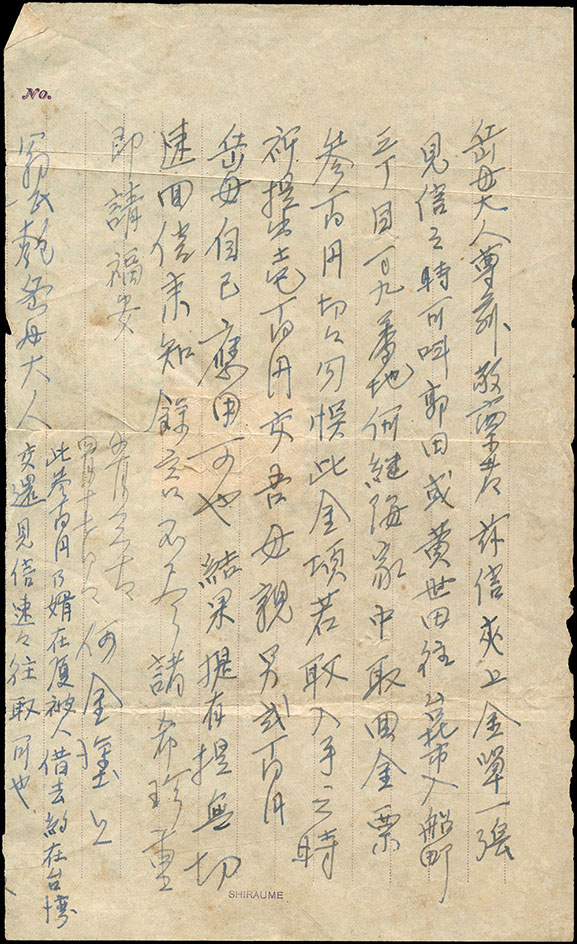 No.
岳母大人尊前 敬稟者 茲信夾上金單一張
見信之時可叫郭田或黃世田往台北市入船町
三丁目百九番地何繼海家中取回金票
參百円切切勿悞此金項若取入手之時
祈提出壱百円交吾母親另弍百円
岳母自己應用可也 結果提有提無切
速回信來知餘言不尽諸希珍重
即請福安
何金 上
翁氏 岳母大人
此參百円乃婿在廈被人借去約在台灣
交還見信速々往取可也
SHIRAUME